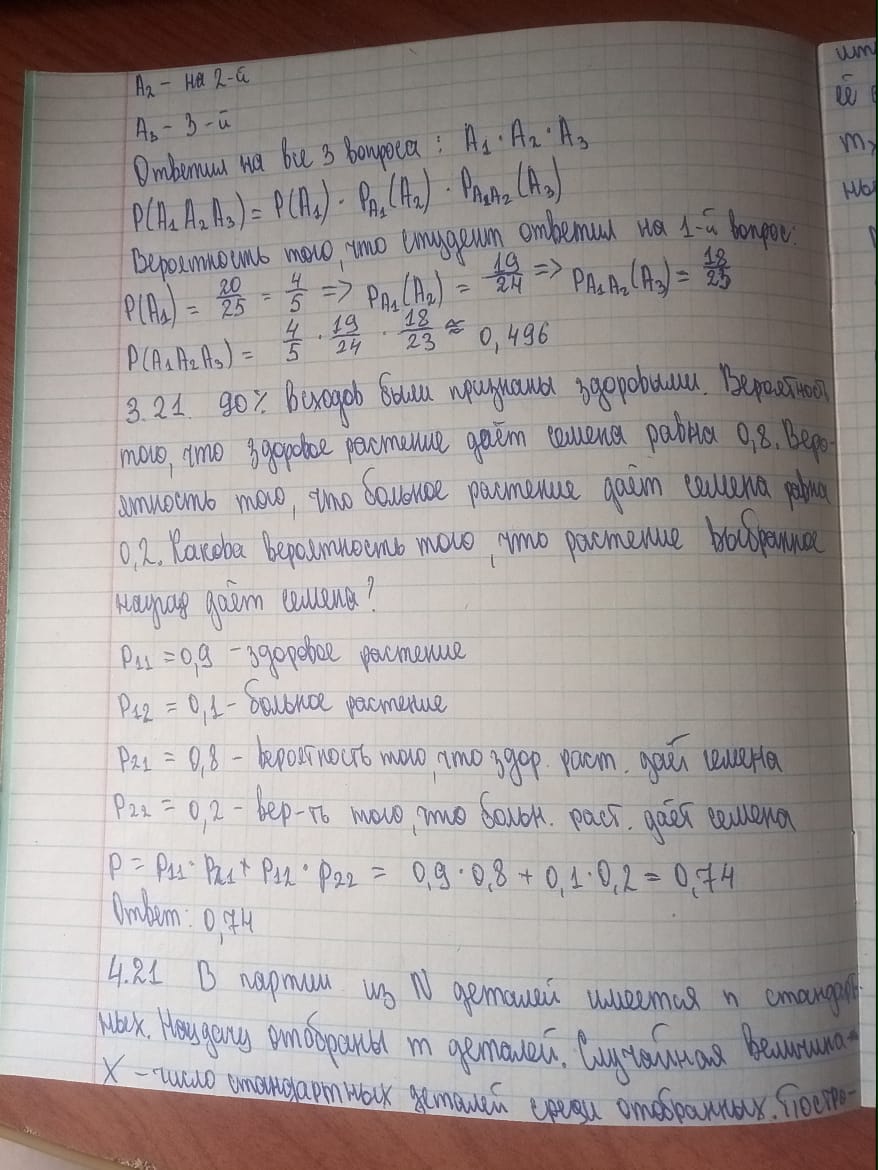 A₂ – на 2-й
A₃ – 3-й
Ответил на все 3 вопроса: A₁ · A₂ · A₃
P(A₁A₂A₃) = P(A₁) · P_A₁(A₂) · P_A₁A₂(A₃)
Вероятность того, что студент ответил на 1-й вопрос:
P(A₁) = 20/25 = 4/5 => P_A₁(A₂) = 19/24 => P_A₁A₂(A₃) = 18/23
P(A₁A₂A₃) = 4/5 · 19/24 · 18/23 ≈ 0,496
3.21. 90% всходов были признаны здоровыми. Вероятность
того, что здоровое растение даёт семена равна 0,8. Веро-
ятность того, что больное растение даёт семена равна
0,2. Какова вероятность того, что растение выбранное
наугад даёт семена?
P₁₁ = 0,9 – здоровое растение
P₁₂ = 0,1 – больное растение
P₂₁ = 0,8 – вероятность того, что здор. раст. даёт семена
P₂₂ = 0,2 – вер-ть того, что больн. раст. даёт семена
P = P₁₁ · P₂₁ + P₁₂ · P₂₂ = 0,9 · 0,8 + 0,1 · 0,2 = 0,74
Ответ: 0,74
4.21 В партии из N деталей имеется n стандарт-
ных. Наудачу отобраны m деталей. Случайная величина
X – число стандартных деталей среди отобранных. Постро-